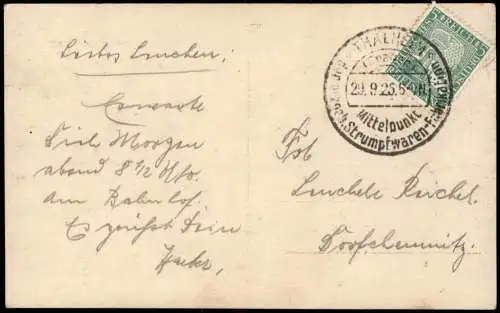 Liebes Lenchen!
Erwarte
Dich Morgen
abend 8 1/2 Uhr
am Bahnhof.
Es grüßt Dein
THALHEIM
29.9.25
Mittelpunkt
Strumpfwaren-F
DEUTSCHES REICH
Frl.
Lenchele Reichel
Dorfchemnitz.